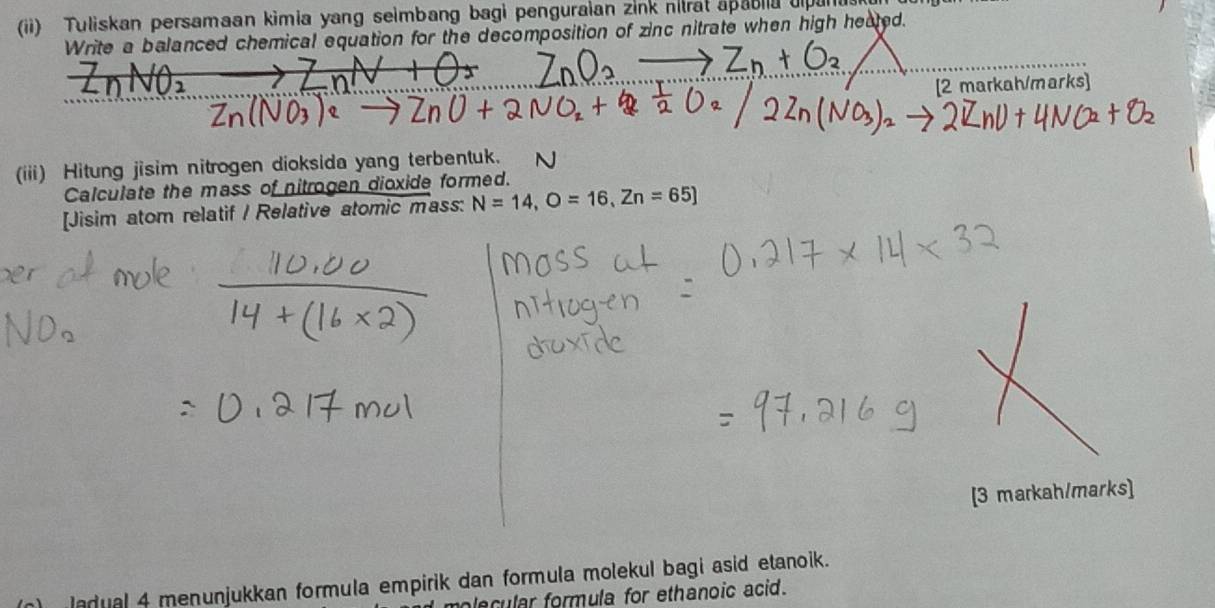 (ii) Tuliskan persamaan kimia yang seimbang bagi penguraian zink nitrat apabila
Write a balanced chemical equation for the decomposition of zinc nitrate when high heated.
ZnNO₂ → ZnN + O₂ ZnO₂ → Zn + O₂
[2 markah/marks]
Zn(NO₃)₂ → ZnO + 2NO₂ + ½ O₂ / 2Zn(NO₃)₂ → 2ZnO + 4NO₂ + O₂
(iii) Hitung jisim nitrogen dioksida yang terbentuk. N
Calculate the mass of nitrogen dioxide formed.
[Jisim atom relatif / Relative atomic mass: N = 14, O = 16, Zn = 65]
mole 10.00 / 14 + (16 × 2)
NO₂
= 0.217 mol
mass of nitrogen dioxide = 0.217 × 14 × 32
= 97.216 g
[3 markah/marks]
Jadual 4 menunjukkan formula empirik dan formula molekul bagi asid etanoik.
molecular formula for ethanoic acid.